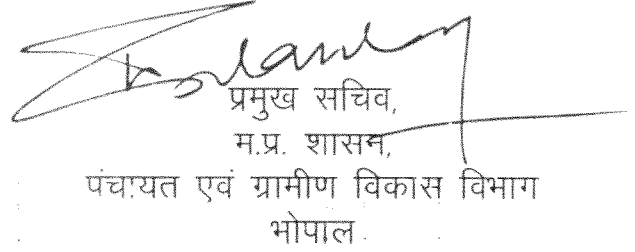 प्रमुख सचिव,
म.प्र. शासन,
पंचायत एवं ग्रामीण विकास विभाग
भोपाल